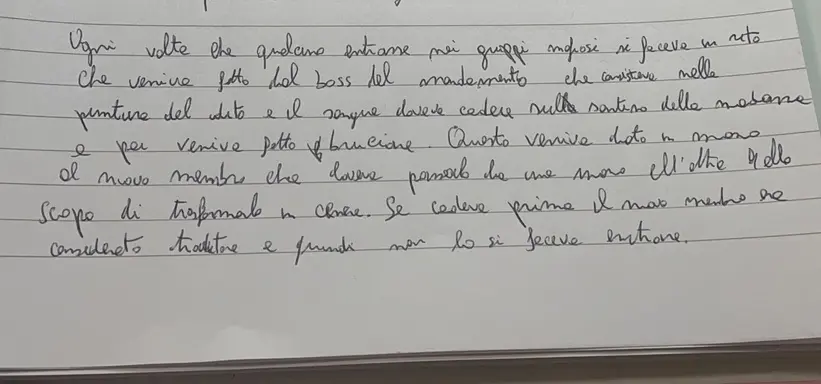 Ogni volta che qualcuno entrasse nei gruppi mafiosi si faceva un rito
che veniva fatto dal boss del mandamento che consisteva nella
puntura del dito e il sangue doveva cadere sulla santino della madonna
e poi veniva fatto bruciare. Questo veniva dato in mano
al nuovo membro che doveva passarlo da una mano all'altra allo
scopo di trasformarlo in cenere. Se cadeva prima il nuovo membro era
considerato traditore e quindi non lo si faceva entrare.